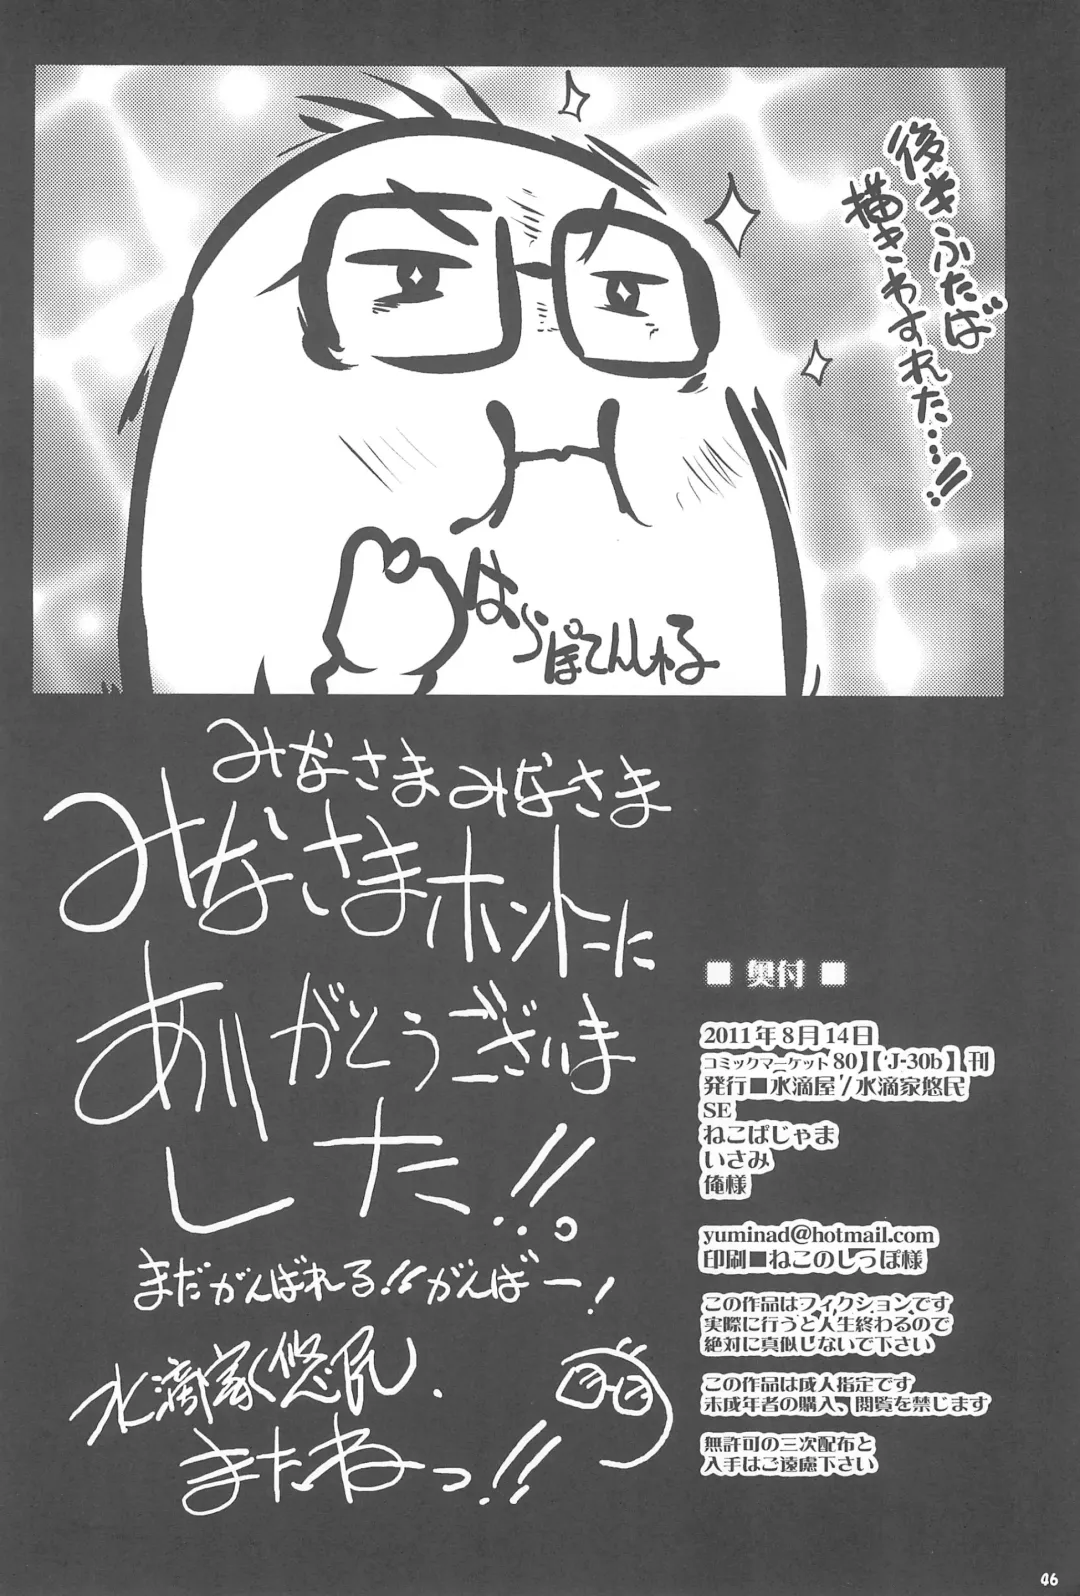 後半ふたば
描きわすれた…!!
はらぽてんしゃる
みなさまみなさま
みなさまホントーに
ありがとうございま
した!!。
まだがんばれる!!がんばー!
水滴家悠民、
またねっ!!
■ 奥付 ■
2011年8月14日
コミックマーケット80】【J-30b】刊
発行■水滴屋/水滴家悠民
SE
ねこぱじゃま
いさみ
俺様
yuminad@hotmail.com
印刷■ねこのしっぽ様
この作品はフィクションです
実際に行うと人生終わるので
絶対に真似しないで下さい
この作品は成人指定です
未成年者の購入、閲覧を禁じます
無許可の三次配布と
入手はご遠慮下さい
46